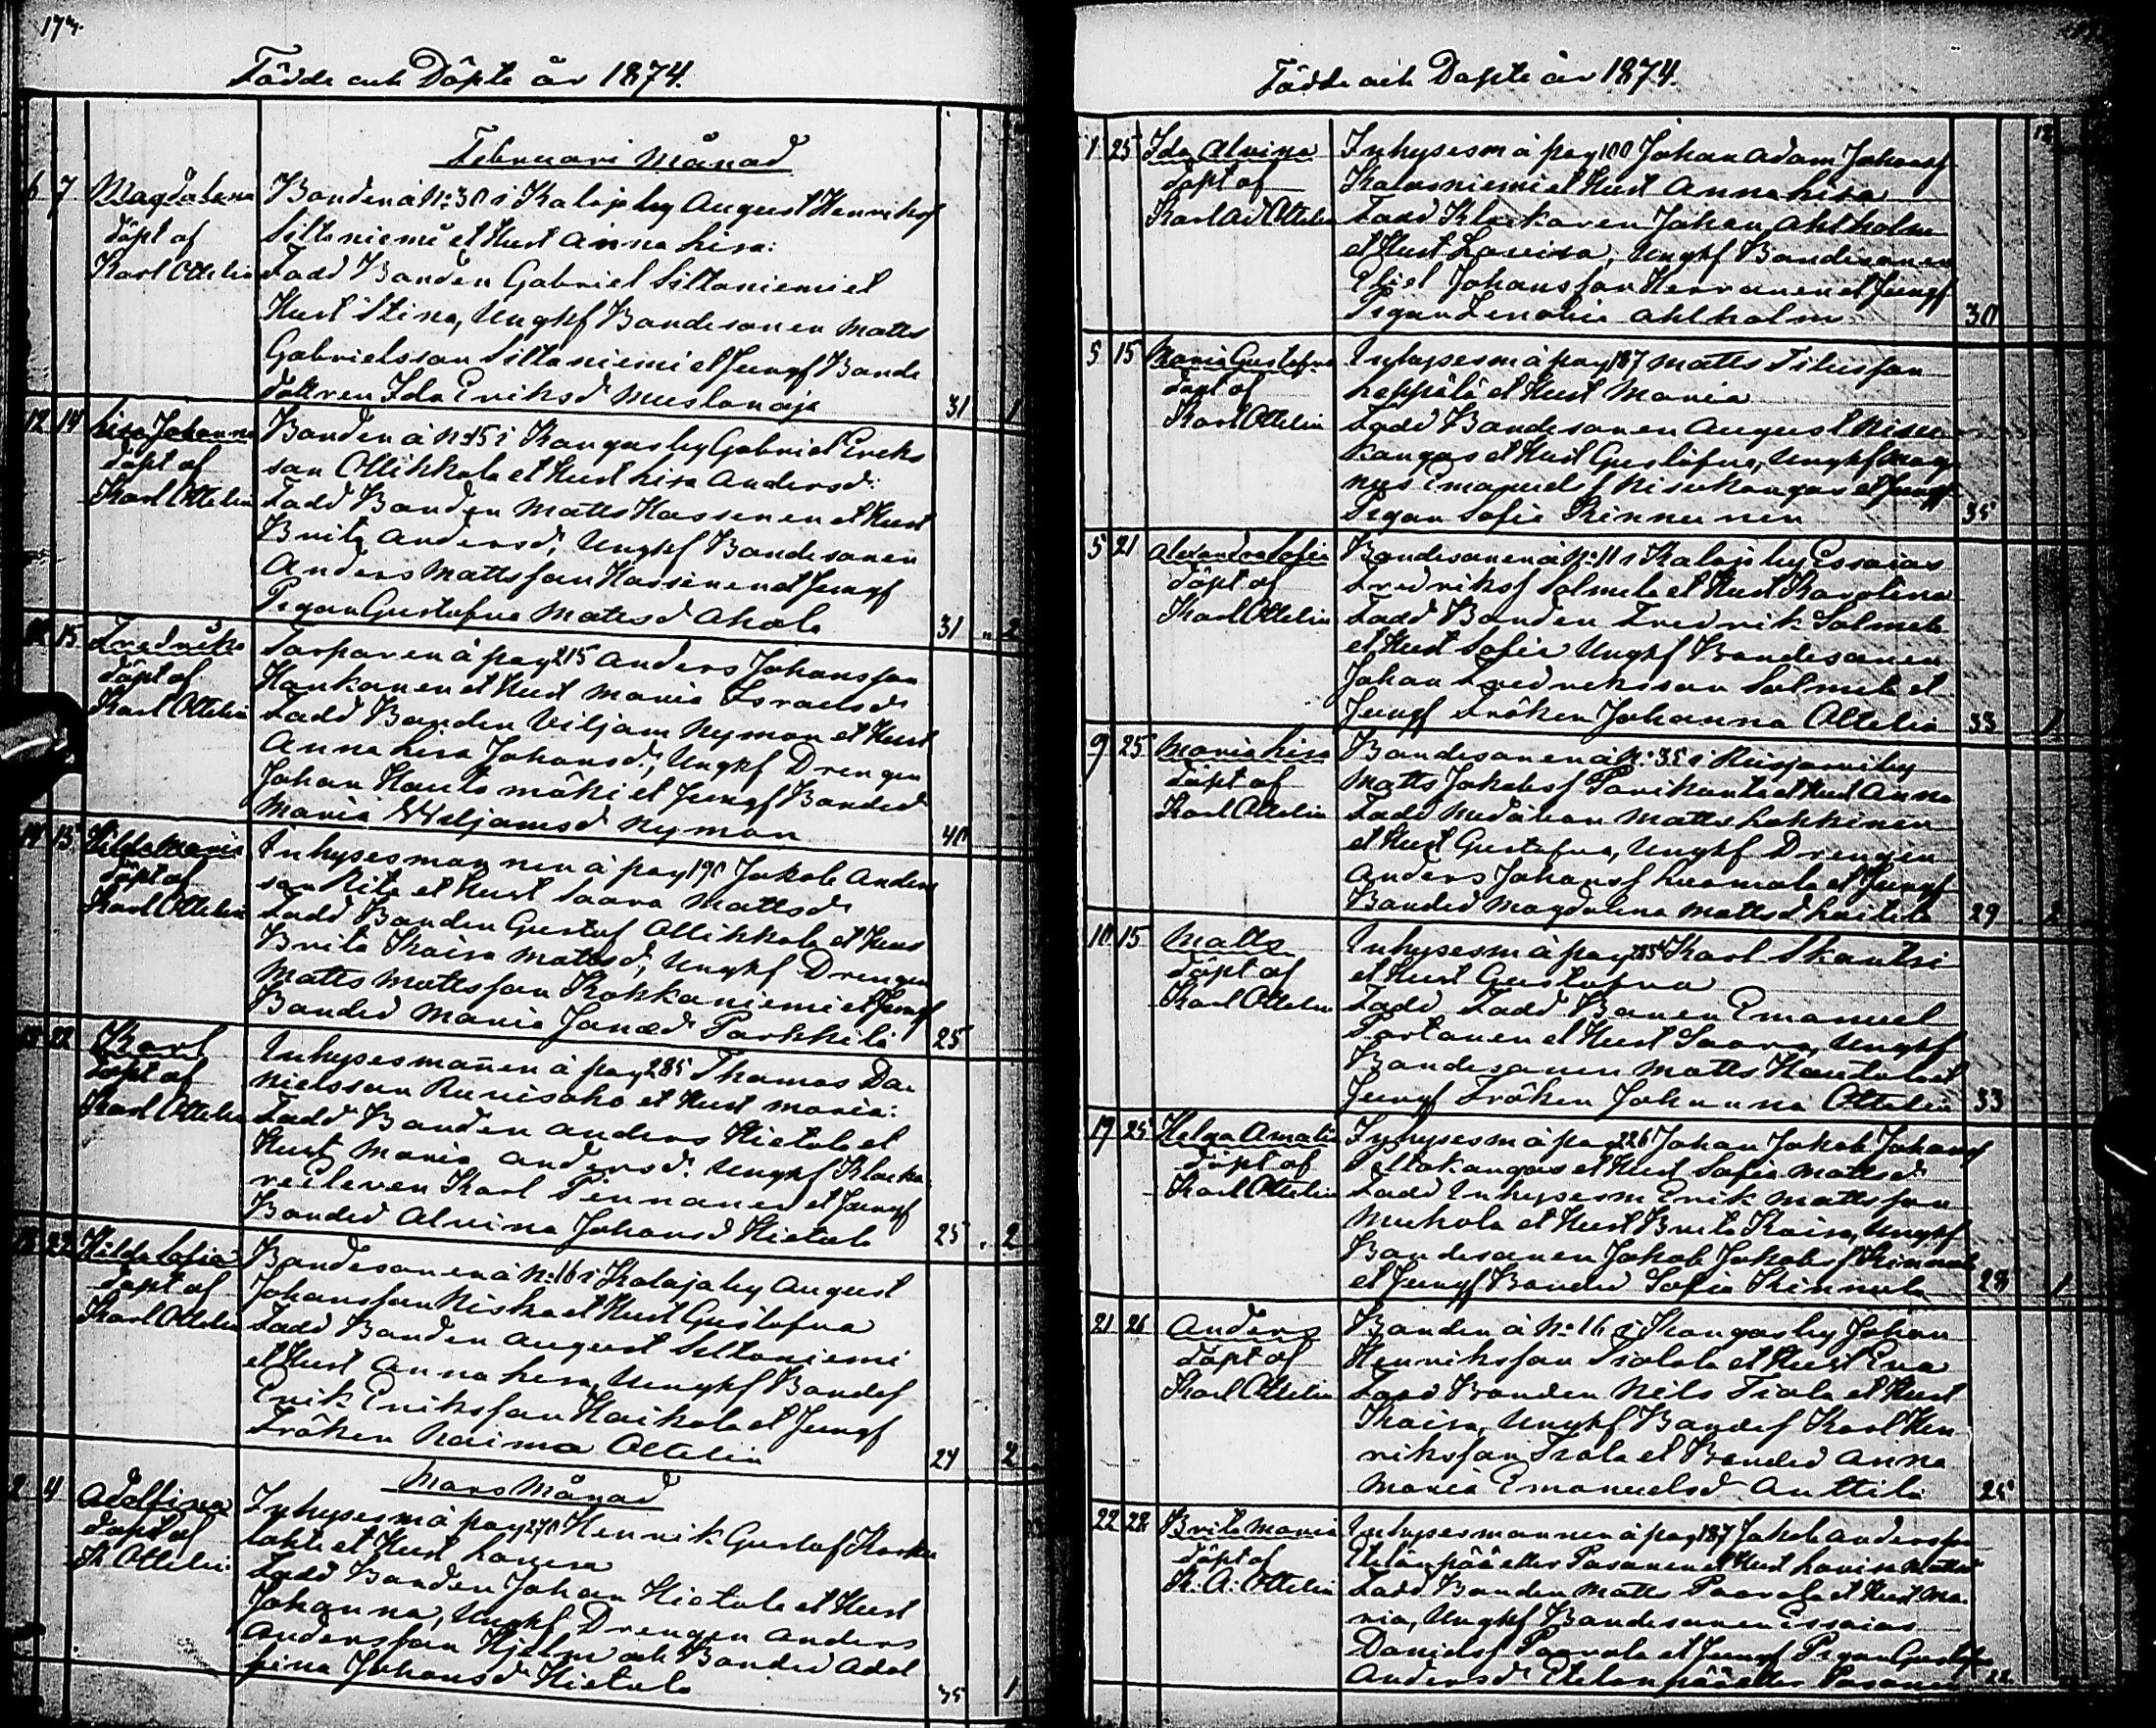 174.
Födde och Döpte år 1874.
Februari Månad
6 7 Magdalena
döpt af
Karl Ottelin
Bonden å No 30 i Kalajaby August Henriksf
Siltaniemi et Hust Anna Lisa:
Fadd Bonden Gabriel Siltaniemi et
Hust Stina, Ungkf Bondesonen Matts
Gabrielsson Siltaniemi et Jungf Bonde
dottren Ida Eriksd Mustonoja 31 1
12 14 Lisa Johanna
döpt af
Karl Ottelin
Bonden å No 15 i Kangasby Gabriel Eriks
son Ollikkala et Hust Lisa Andersd:
Fadd Bonden Matts Hassinen et Hust
Brita Andersd, Ungkf Bondesonen
Anders Mattsson Hassinen et Jungf
Pigan Gustafva Mattsd Ahola 31 2
15 Fredrika
döpt af
Karl Ottelin
Torparen å pag 215 Anders Johansson
Honkanen et Hust Maria Israelsd
Fadd Bonden Viljam Nyman et Hust
Anna Lisa Johansd, Ungkf Drengen
Johan Hautamäki et Jungf Bonded
Maria Wiljamsd Nyman 40
14 15 Hilda Maria
döpt af
Karl Ottelin
Inhysesmannen å pag 190 Jakob Anders
son Rita et Hust Saara Mattsd
Fadd Bonden Gustaf Ollikkala et Hust
Brita Kaisa Mattsd, Ungkf Drengen
Matts Mattsson Kokkaniemi et Jungf
Bonded Maria Jonæd Parkkila 25
22 Karl
döpt af
Karl Ottelin
Inhysesmañen å pag 285 Thomas Da-
nielsson Ruuisaho et Hust Maria:
Fadd Bonden Anders Hietala et
Hust Maria Andersd. Ungkf Klocka-
reeleven Karl Pennanen et Jungf
Bonded Alvina Johansd Hietala 25 2
22 Hilda Sofia
döpt af
Karl Ottelin
Bondesonen å No 16 i Kalajaby August
Johansson Niska et Hust Gustafva
Fadd Bonden August Siltaniemi
et Hust Anna Lisa, Ungkf Bondes
Erik Eriksson Haikola et Jungf
Fröken Naima Ottelin 24 2
Mars Månad
2 4 Adolfina
döpt af
K Ottelin
Inhysesm å pag 270 Henrik Gustaf Koski
lahti et Hust Lovisa
Fadd Bonden Johan Hietala et Hust
Johanna, Ungkf Drengen Anders
Andersson Hjelm och Bonded Adol
fina Johansd Hietala 35 1
Födde och Döpte år 1874.
1 25 Ida Alvina
döpt af
Karl Ad Ottelin
Inhysesm å pag 100 Johan Adam Johansf
Kalasniemi et Hust Anna Lisa
Fadd Klockaren Johan Ahlholm
et Hust Lovisa, Ungkf Bondesonen
Eliel Johansson Herranen et Jungf
Pigan Zenobia Ahlholm 30
5 15 Maria Gustafva
döpt af
Karl Ottelin
Inhysesm å pag 187 Matts Titusson
Leppälä et Hust Maria
Fadd Bondesonen August Nisu
kangas et Hust Gustafva, Ungkf Mag
nus Emanuelsf Nisukangas et Jungf
Pigan Sofia Kinnunen 35
5 21 Alexandra Sofia
döpt af
Karl Ottelin
Bondesonen å No 11 i Kalajaby Essaias
Fredriksf Salmela et Hust Karolina
Fadd Bonden Fredrik Salmela
et Hust Sofia Ungkf Bondesonen
Johan Fredriksson Salmela et
Jungf Fröken Johanna Ottelin 33 1
9 25 Maria Lisa
döpt af
Karl Ottelin
Bondesonen å No 35 i Reisjärviby
Matts Jakobsf Parikanta et Hust Anna
Fadd Nedåkan Matts Lokkinen
et Hust Gustafva, Ungkf Drengen
Anders Johansf Luomala et Jungf
Bonded Magdalena Mattsd Laitila 29 2
10 15 Matts
döpt af
Karl Ottelin
Inhysesm å pag Karl Skantsi
et Hust Gustafva
Fadd Fadd Bonen Emanuel
Partanen et Hust Saara, Ungkf
Bondesonen Matts Hautala et
Jungf Fröken Johanna Ottelin 33
19 25 Helga Amalia
döpt af
Karl Ottelin
Inhysesm å pag 226 Johan Jakob Johansf
Peltokangas et Hust Sofia Mattsd
Fadd Inhysesm Erik Mattsson
Muhola et Hust Brita Kaisa, Ungkf
Bondesonen Jakob Jakobsf Kinnula
et Jungf Bonded Sofia Kinnula 28 1
21 26 Anders
döpt af
Karl Ottelin
Bonden å No 16 i Kangasby Johan
Henriksson Tialala et Hust Eva
Fadd Bonden Nils Tiala et Hust
Kaisa, Ungkf Bondes Karl Hen
riksson Tiala et Bonded Anna
Maria Emanuelsd Anttila 25
22 28 Brita Maria
döpt af
K. A. Ottelin
Inhysesmannen å pag 187 Jakob Andersson
Etelänpää eller Pasanen et Hust Lovisa Mattsd
Fadd Bonden Matts Paavola et Hust Ma-
ria, Ungkf Bondesonen Essaias
Danielsf Paavola et Jungf Pigan Gustafva
Andersd Etelänpää eller Pasanen 22